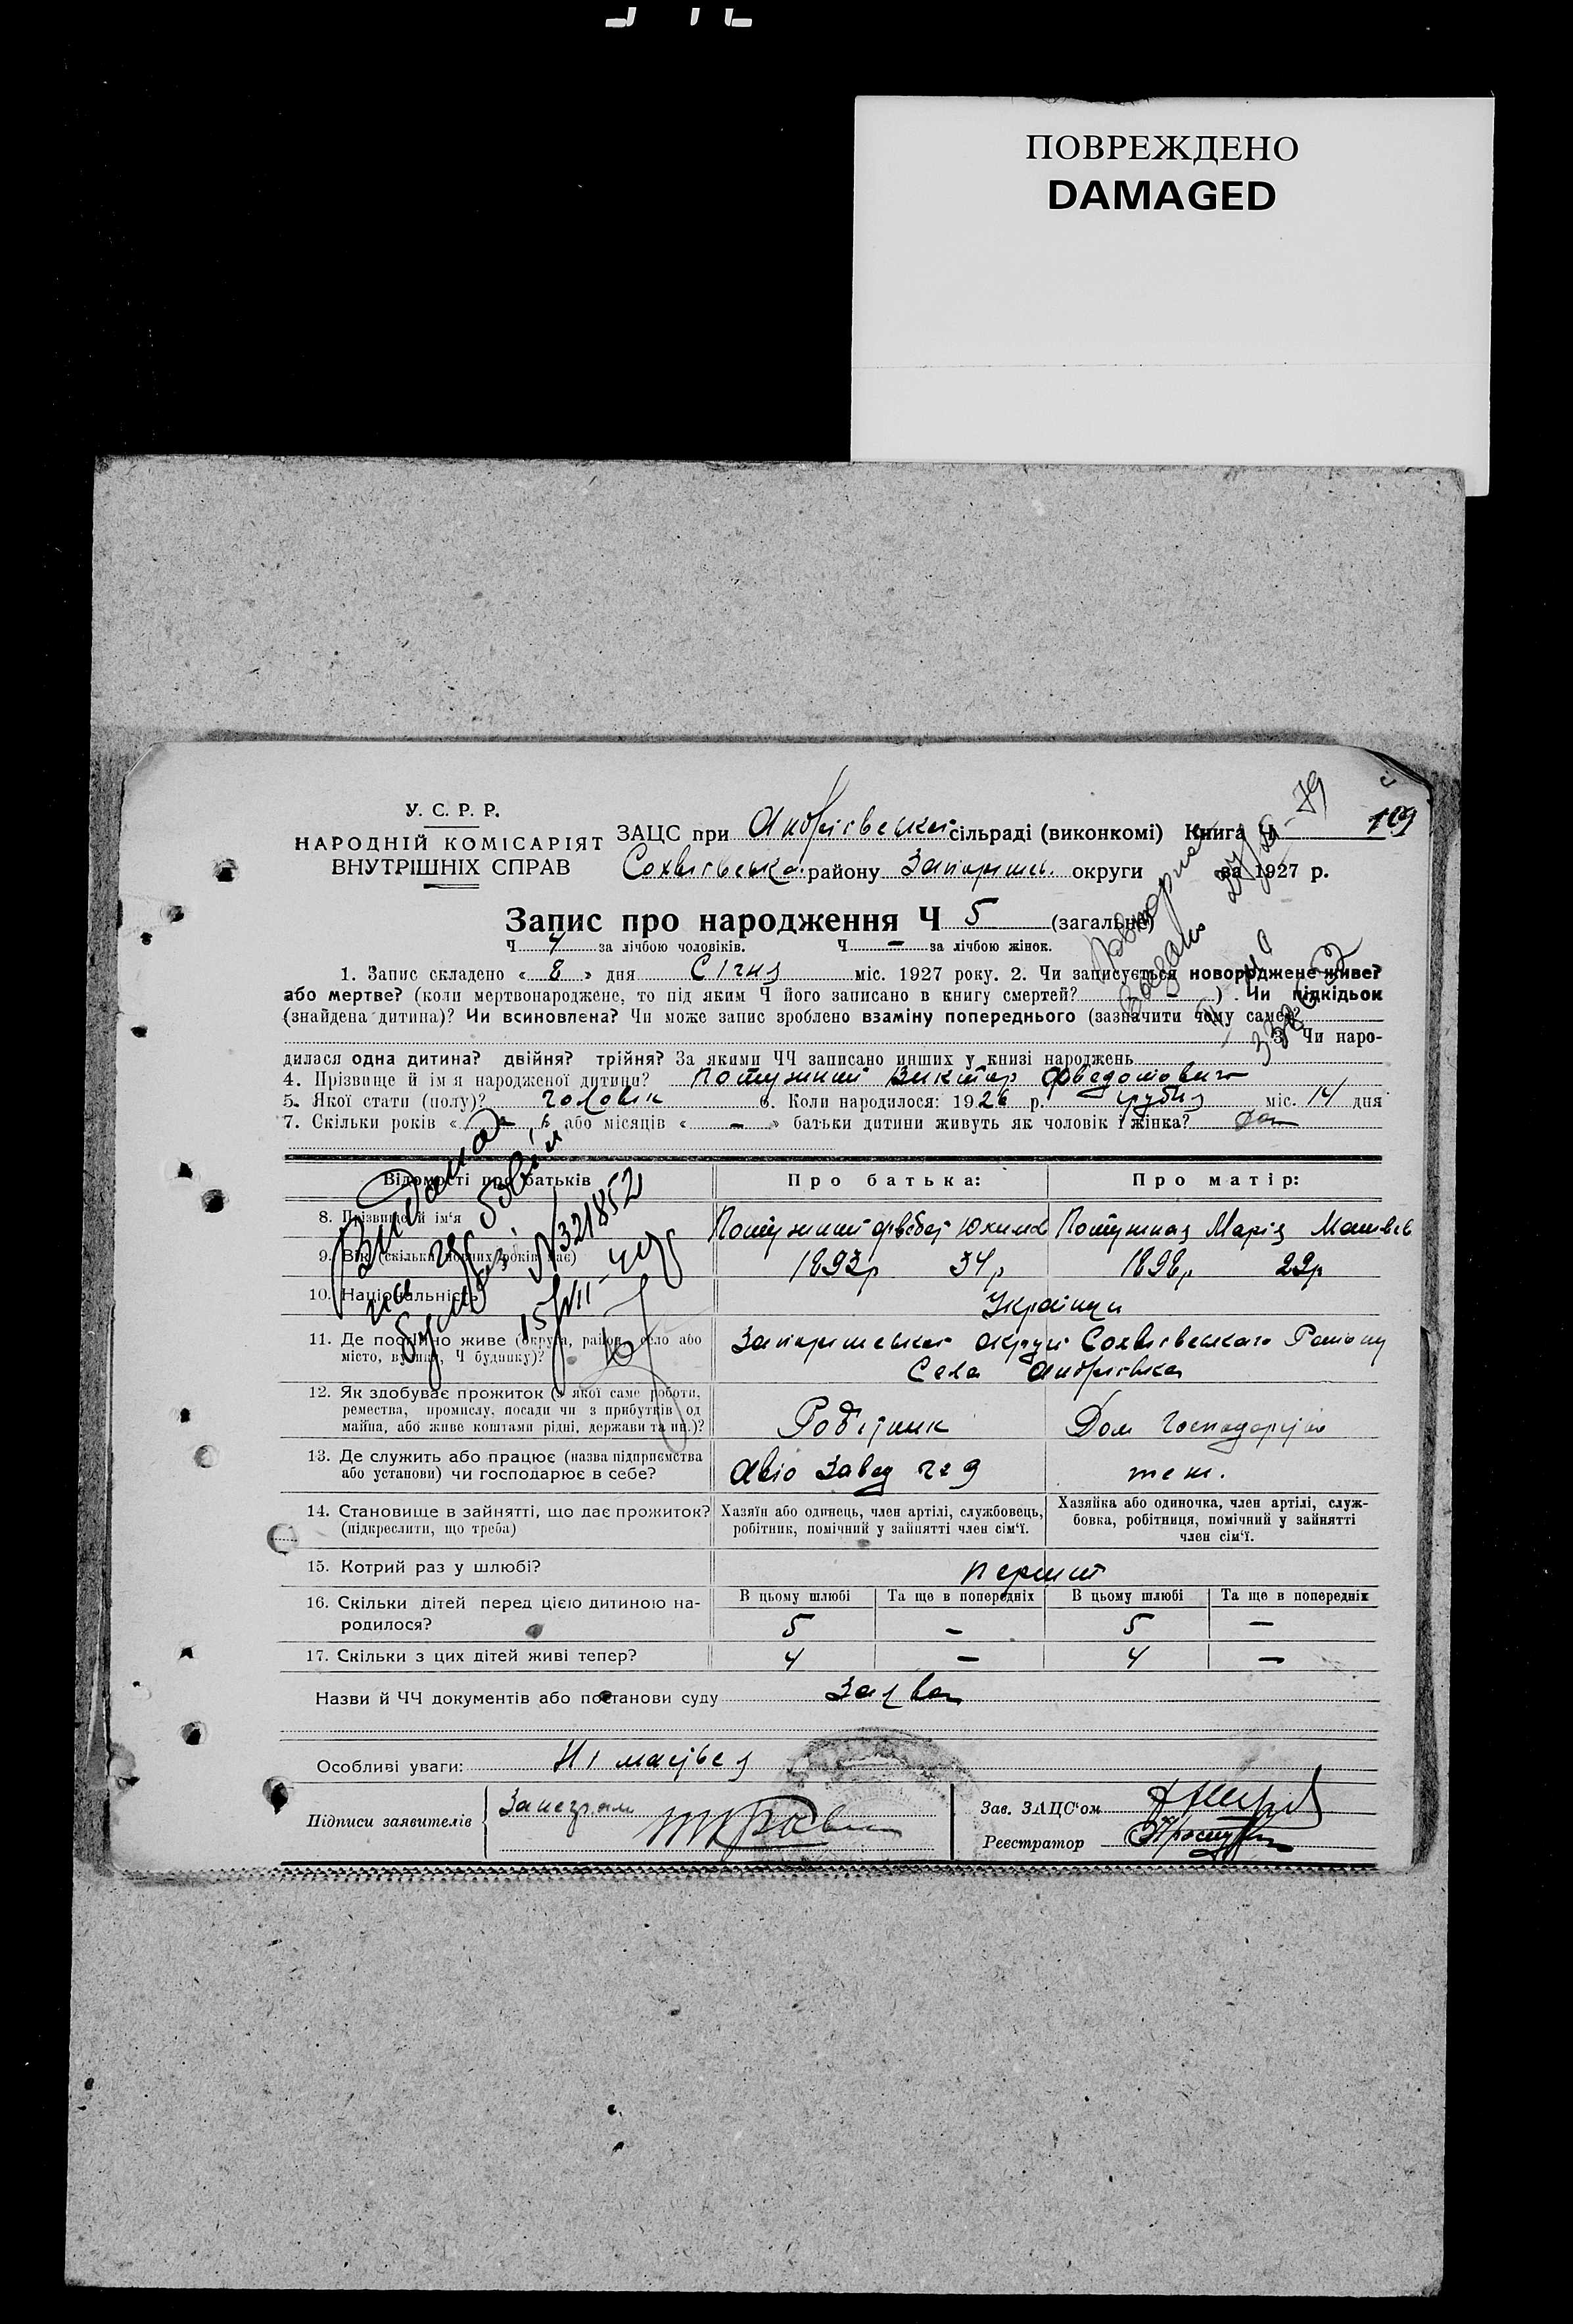 ПОВРЕЖДЕНО
DAMAGED
109
У. С. Р. Р.
НАРОДНІЙ КОМІСАРІЯТ
ВНУТРІШНІХ СПРАВ
ЗАЦС при Андріївській сільраді (виконкомі) Книга Ч
района Запоріжж. округи за 1927 р.
Запис про народження Ч 5 (загальне)
Ч 4 за лічбою чоловіків. Ч — за лічбою жінок.
1. Запис складено « 8 » дня Січня міс. 1927 року. 2. Чи записується новороджене живе?
або мертве? (коли мертвонароджене, то під яким Ч його записано в книгу смертей? — ) Чи підкідьок
(знайдена дитина)? Чи всиновлена? Чи може запис зроблено взаміну попереднього (зазначити чому саме)?
3. Чи наро-
дилася одна дитина? двійня? трійня? За якими ЧЧ записано инших у книзі народжень
4. Прізвище й ім'я народженої дитини? Потужний Виктор Фведотович
5. Якої стати (полу)? чоловік 6. Коли народилося: 1926 р. грудня міс. 14 дня
7. Скільки років « » або місяців « — » батьки дитини живуть як чоловік і жінка?
Відомості про батьків
Про батька:
Про матір:
8. Прізвище й ім'я
Потужний Юхимов Потужная Марія Матвев
9. Вік (скільки повних років має)
1893р 34р 1898р 29р
10. Національність
Українци
11. Де постійно живе (округа, район, село або
місто, вулиця, Ч будинку)?
Запоріжської округи Району
Села Андрієвка
12. Як здобуває прожиток (з якої саме роботи,
ремества, промислу, посади чи з прибутків од
майна, або живе коштами рідні, держави та ин.)?
Робітник
Дом Господарство
13. Де служить або працює (назва підприємства
або установи) чи господарює в себе?
Авіо Завод №9
теж.
14. Становище в зайнятті, що дає прожиток?
(підкреслити, що треба)
Хазяїн або одинець, член артілі, службовець,
робітник, помічний у зайнятті член сім'ї.
Хазяйка або одиночка, член артілі, служ-
бовка, робітниця, помічний у зайнятті
член сім'ї.
15. Котрий раз у шлюбі?
перший
16. Скільки дітей перед цією дитиною на-
родилося?
В цьому шлюбі Та ще в попередніх В цьому шлюбі Та ще в попередніх
5 — 5 —
17. Скільки з цих дітей живі тепер? 4 — 4 —
Назви й ЧЧ документів або постанови суду Заява
Особливі уваги: Ні мається
Підписи заявителів
Зав. ЗАЦС'ом
Реєстратор
Видана
№321852
15/VII-44